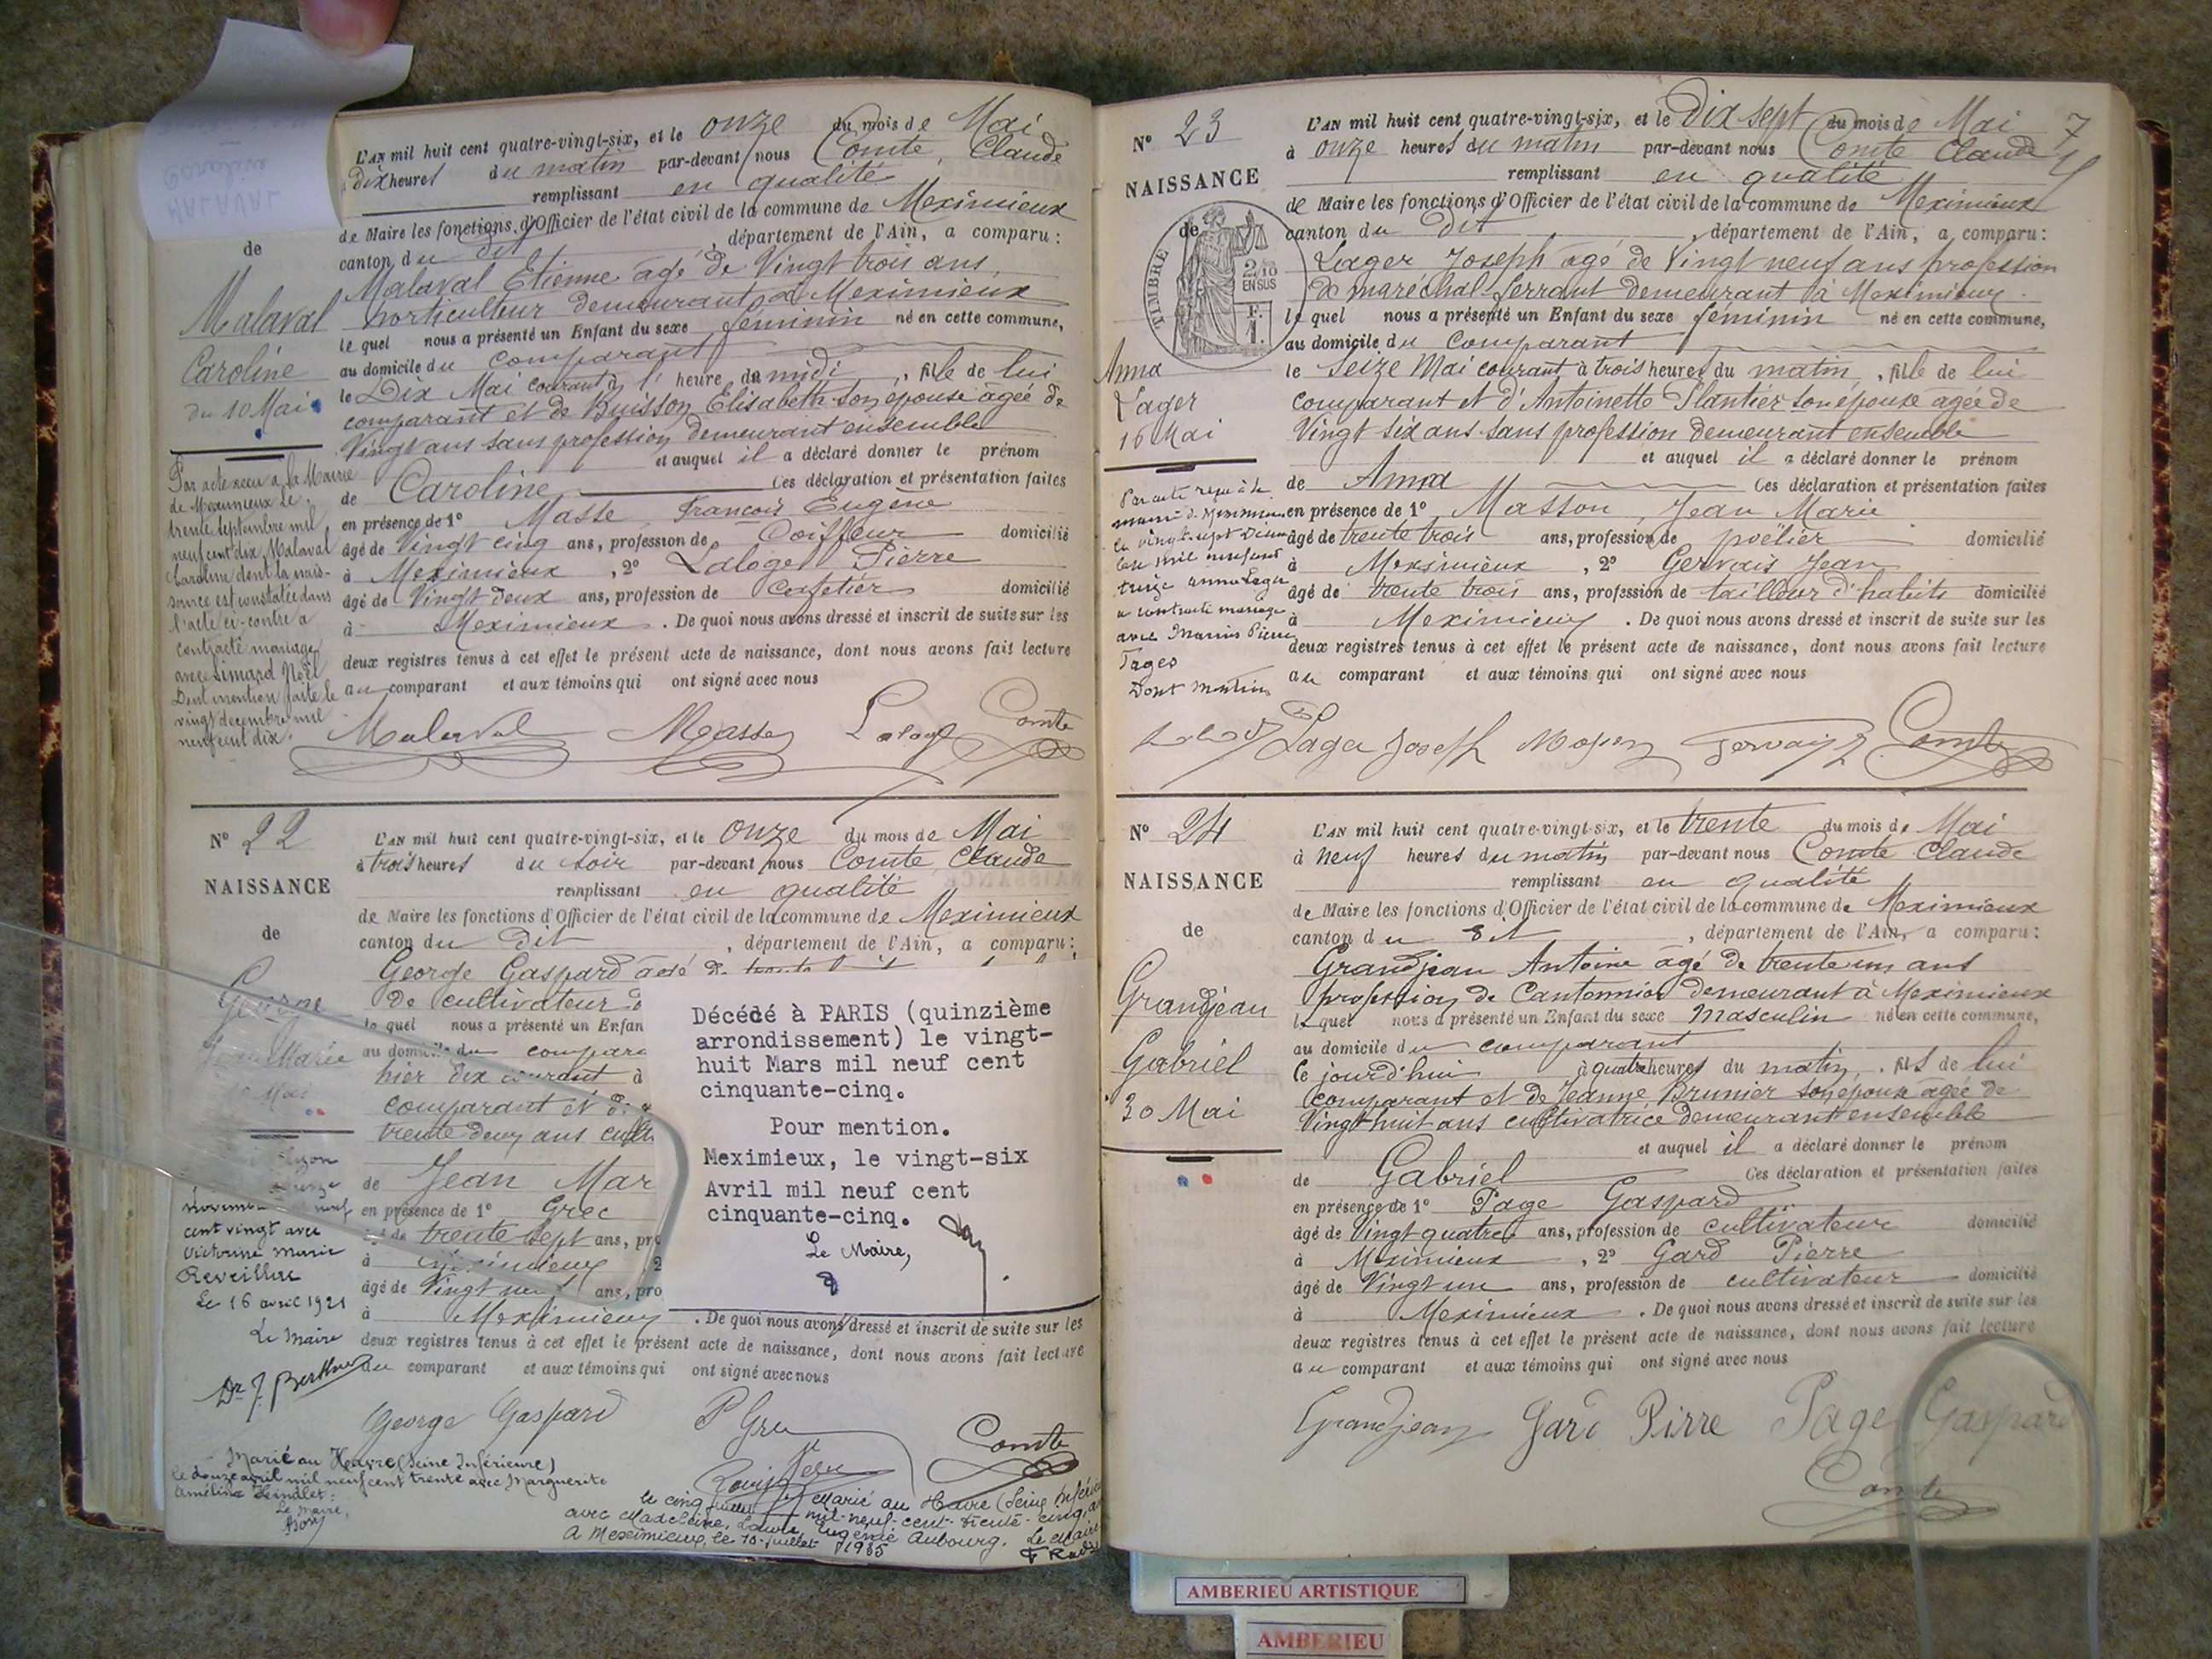 L'AN mil huit cent quatre-vingt-six, et le onze du mois de Mai
dix heures du matin par-devant nous Comte, Claude
remplissant en qualité
de Maire les fonctions d'Officier de l'état civil de la commune de Meximieux
canton du dit, département de l'Ain, a comparu:
Malaval Etienne agé de Vingt trois ans,
horticulteur demeurant à Meximieux
le quel nous a présenté un Enfant du sexe féminin né en cette commune,
au domicile du comparant
le Dix Mai courant à 1' heure du midi, fille de lui
comparant et de Buisson Elisabeth son épouse agée de
Vingt ans sans profession demeurant ensemble
et auquel il a déclaré donner le prénom
de Caroline Ces déclaration et présentation faites
en présence de 1° Masse, François Eugène
âgé de Vingt cinq ans, profession de Coiffeur domicilié
à Meximieux, 2° Laloge Pierre
âgé de Vingt deux ans, profession de Cafetier domicilié
à Meximieux. De quoi nous avons dressé et inscrit de suite sur les
deux registres tenus à cet effet le présent acte de naissance, dont nous avons fait lecture
au comparant et aux témoins qui ont signé avec nous
Malaval Masse Laloge Comte
MALAVAL
Caroline
de
Malaval
Caroline
du 10 Mai
Par acte reçu à la Mairie
de Meximieux le
trente septembre mil
neuf cent dix, Malaval
Caroline dont la nais-
sance est constatée dans
l'acte ci-contre a
contracté mariage
avec Simard Noël
Dont mention faite le
vingt decembre mil
neuf cent dix.
N° 22
NAISSANCE
de
George
Jean Marie
Mai
L'AN mil huit cent quatre-vingt-six, et le onze du mois de Mai
à trois heures du soir par-devant nous Comte, Claude
remplissant en qualité
de Maire les fonctions d'Officier de l'état civil de la commune de Meximieux
canton du dit, département de l'Ain, a comparu:
George Gaspard agé de
de cultivateur
le quel nous a présenté un Enfan
au domicile du compara
hier dix courant à
comparant et de
trente deux ans cult
de Jean Mar
en présence de 1° Grec
âgé de trente sept ans, pro
à Meximieux, 2
âgé de Vingt neuf ans, pro
à Meximieux. De quoi nous avons dressé et inscrit de suite sur les
deux registres tenus à cet effet le présent acte de naissance, dont nous avons fait lecture
au comparant et aux témoins qui ont signé avec nous
Décédé à PARIS (quinzième
arrondissement) le vingt-
huit Mars mil neuf cent
cinquante-cinq.
Pour mention.
Meximieux, le vingt-six
Avril mil neuf cent
cinquante-cinq.
Le Maire,
neuf
cent vingt avec
Victorine Marie
Reveillère
Le 16 avril 1921
Le Maire
Dr J. Berthier
George Gaspard P Grec Comte
Marié au Havre (Seine Inférieure)
le douze avril mil neuf cent trente avec Marguerite
Le Maire,
Marié au Havre (Seine Inférieure
le cinq juillet mil-neuf-cent-trente-cinq
avec Madeleine, Laure, Eugénie Aubourg.
A Meximieux, le 10 juillet 1935 Le Maire
N° 23
NAISSANCE
de
TIMBRE
2/10
EN SUS
F.
1.
Anna
Lager
16 Mai
7
L'AN mil huit cent quatre-vingt-six, et le Dix sept du mois de Mai
à onze heures du matin par-devant nous Comte Claude
remplissant en qualité
de Maire les fonctions d'Officier de l'état civil de la commune de Meximieux
canton du dit, département de l'Ain, a comparu:
Lager Joseph agé de Vingt neuf ans profession
de maréchal-ferrant demeurant à Meximieux.
le quel nous a présenté un Enfant du sexe féminin né en cette commune,
au domicile du comparant
le Seize Mai courant à trois heures du matin, fille de lui
comparant et d'Antoinette Plantier son épouse agée de
Vingt six ans sans profession demeurant ensemble
et auquel il a déclaré donner le prénom
de Anna Ces déclaration et présentation faites
en présence de 1° Masson, Jean Marie
âgé de trente trois ans, profession de poëlier domicilié
à Meximieux, 2° Gervais Jean
âgé de trente trois ans, profession de tailleur d'habits domicilié
à Meximieux. De quoi nous avons dressé et inscrit de suite sur les
deux registres tenus à cet effet le présent acte de naissance, dont nous avons fait lecture
au comparant et aux témoins qui ont signé avec nous
Par acte reçu à la
mairie de Meximieux
le vingt sept
mil neuf cent
treize Anna Lager
a contracté mariage
avec Marius Pierre
Pages
Dont mention
Lager Joseph Masson Gervais Comte
N° 24
NAISSANCE
de
Grandjean
Gabriel
30 Mai
L'AN mil huit cent quatre-vingt-six, et le trente du mois de Mai
à neuf heures du matin par-devant nous Comte Claude
remplissant en qualité
de Maire les fonctions d'Officier de l'état civil de la commune de Meximieux
canton du dit, département de l'Ain, a comparu:
Grandjean Antoine agé de trente un ans
profession de Cantonnier demeurant à Meximieux
le quel nous a présenté un Enfant du sexe Masculin né en cette commune,
au domicile du comparant
le jourd'hui à quatre heures du matin, fils de lui
comparant et de Jeanne Brunier son épouse agée de
Vingt huit ans cultivatrice demeurant ensemble
et auquel il a déclaré donner le prénom
de Gabriel Ces déclaration et présentation faites
en présence de 1° Page Gaspard
âgé de Vingt quatre ans, profession de cultivateur domicilié
à Meximieux, 2° Gard Pierre
âgé de Vingt un ans, profession de cultivateur domicilié
à Meximieux. De quoi nous avons dressé et inscrit de suite sur les
deux registres tenus à cet effet le présent acte de naissance, dont nous avons fait lecture
au comparant et aux témoins qui ont signé avec nous
Grandjean Gard Pirre Page Gaspard
Comte
AMBERIEU ARTISTIQUE
AMBERIEU